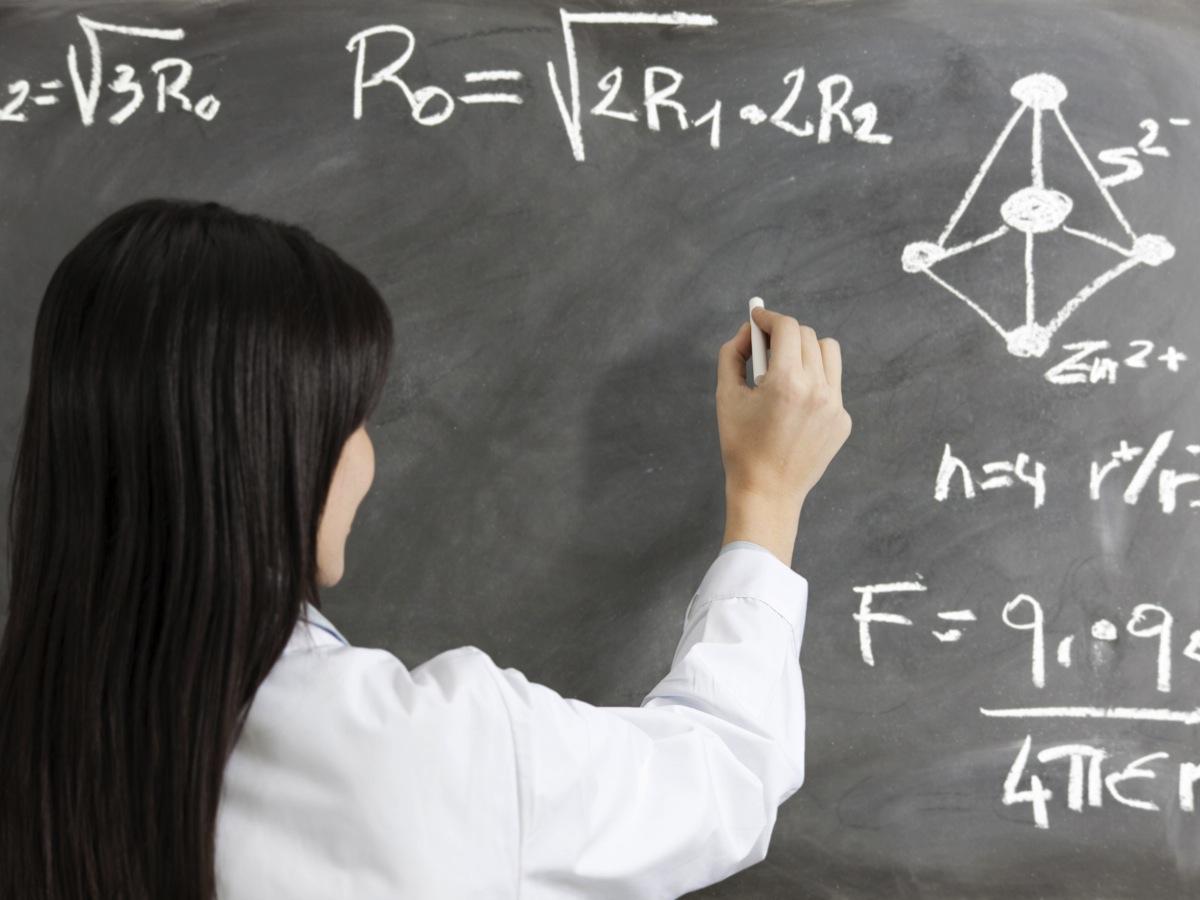 2=√3R₀
R₀=√2R₁•2R₂
S²⁻
Zn²⁺
n=4 r⁺/r⁻
F=q₁•q₂
4πεr